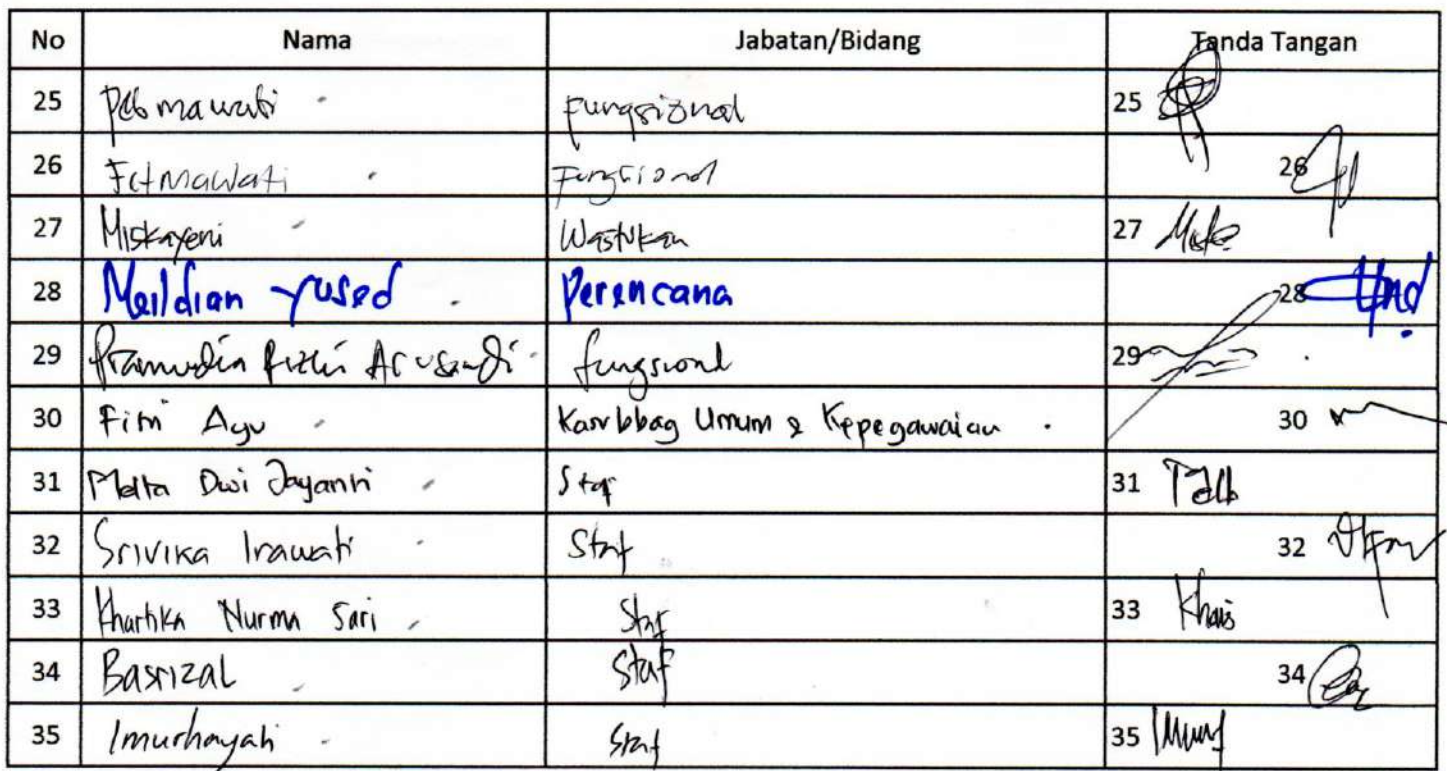 No Nama Jabatan/Bidang Tanda Tangan
25 Fungsional 25
26 Fitmawati Fungsional 26
27 Miskayeni Wastukan 27
28 Meildian Yused Perencana 28
29 Pramudia Rizki Arusandi fungsional 29
30 Fitri Ayu Kasubbag Umum & Kepegawaian 30
31 Melta Dwi Jayanti Staf 31
32 Srivika Irawati Staf 32
33 Khartika Nurma Sari Staf 33
34 Basrizal Staf 34
35 Imurhayati Staf 35